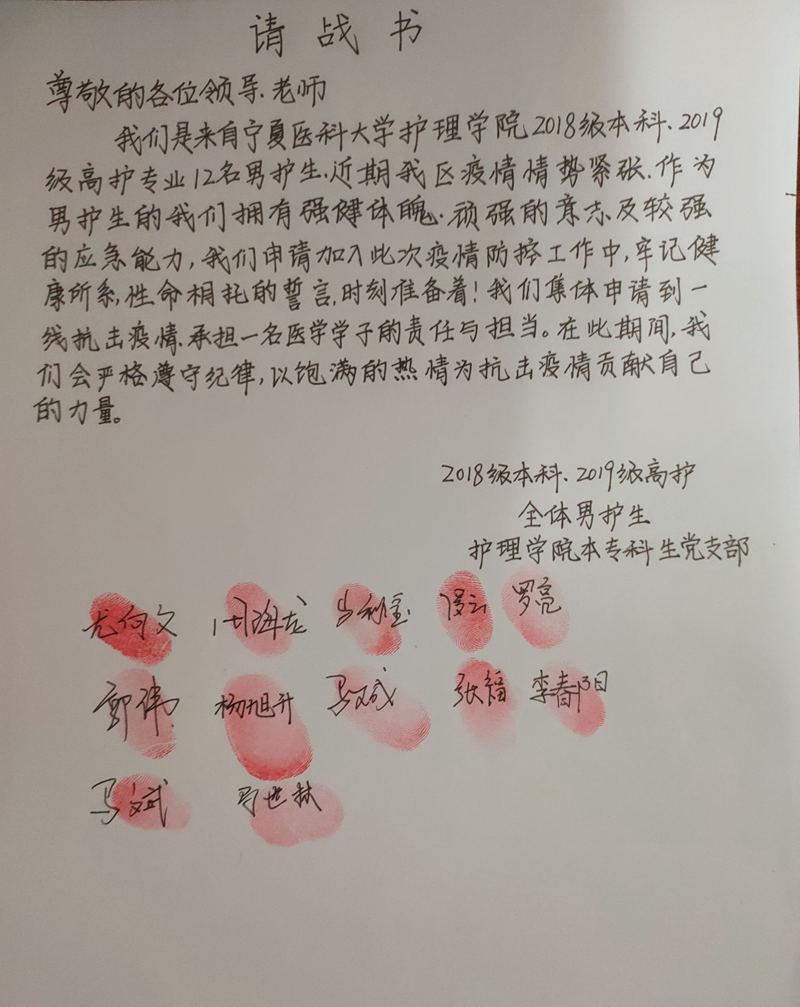 请战书
尊敬的各位领导、老师
我们是来自宁夏医科大学护理学院2018级本科、2019
级高护专业12名男护生.近期我区疫情情势紧张.作为
男护生的我们拥有强健体魄.顽强的意志及较强
的应急能力,我们申请加入此次疫情防控工作中,牢记健
康所系,性命相托的誓言,时刻准备着!我们集体申请到一
线抗击疫情.承担一名医学学子的责任与担当。在此期间,我
们会严格遵守纪律,以饱满的热情为抗击疫情贡献自己
的力量。
2018级本科、2019级高护
全体男护生
护理学院本专科生党支部
尤向文 周海龙 罗亮
郭伟 杨旭升 张福 李春阳
马文斌 马世林